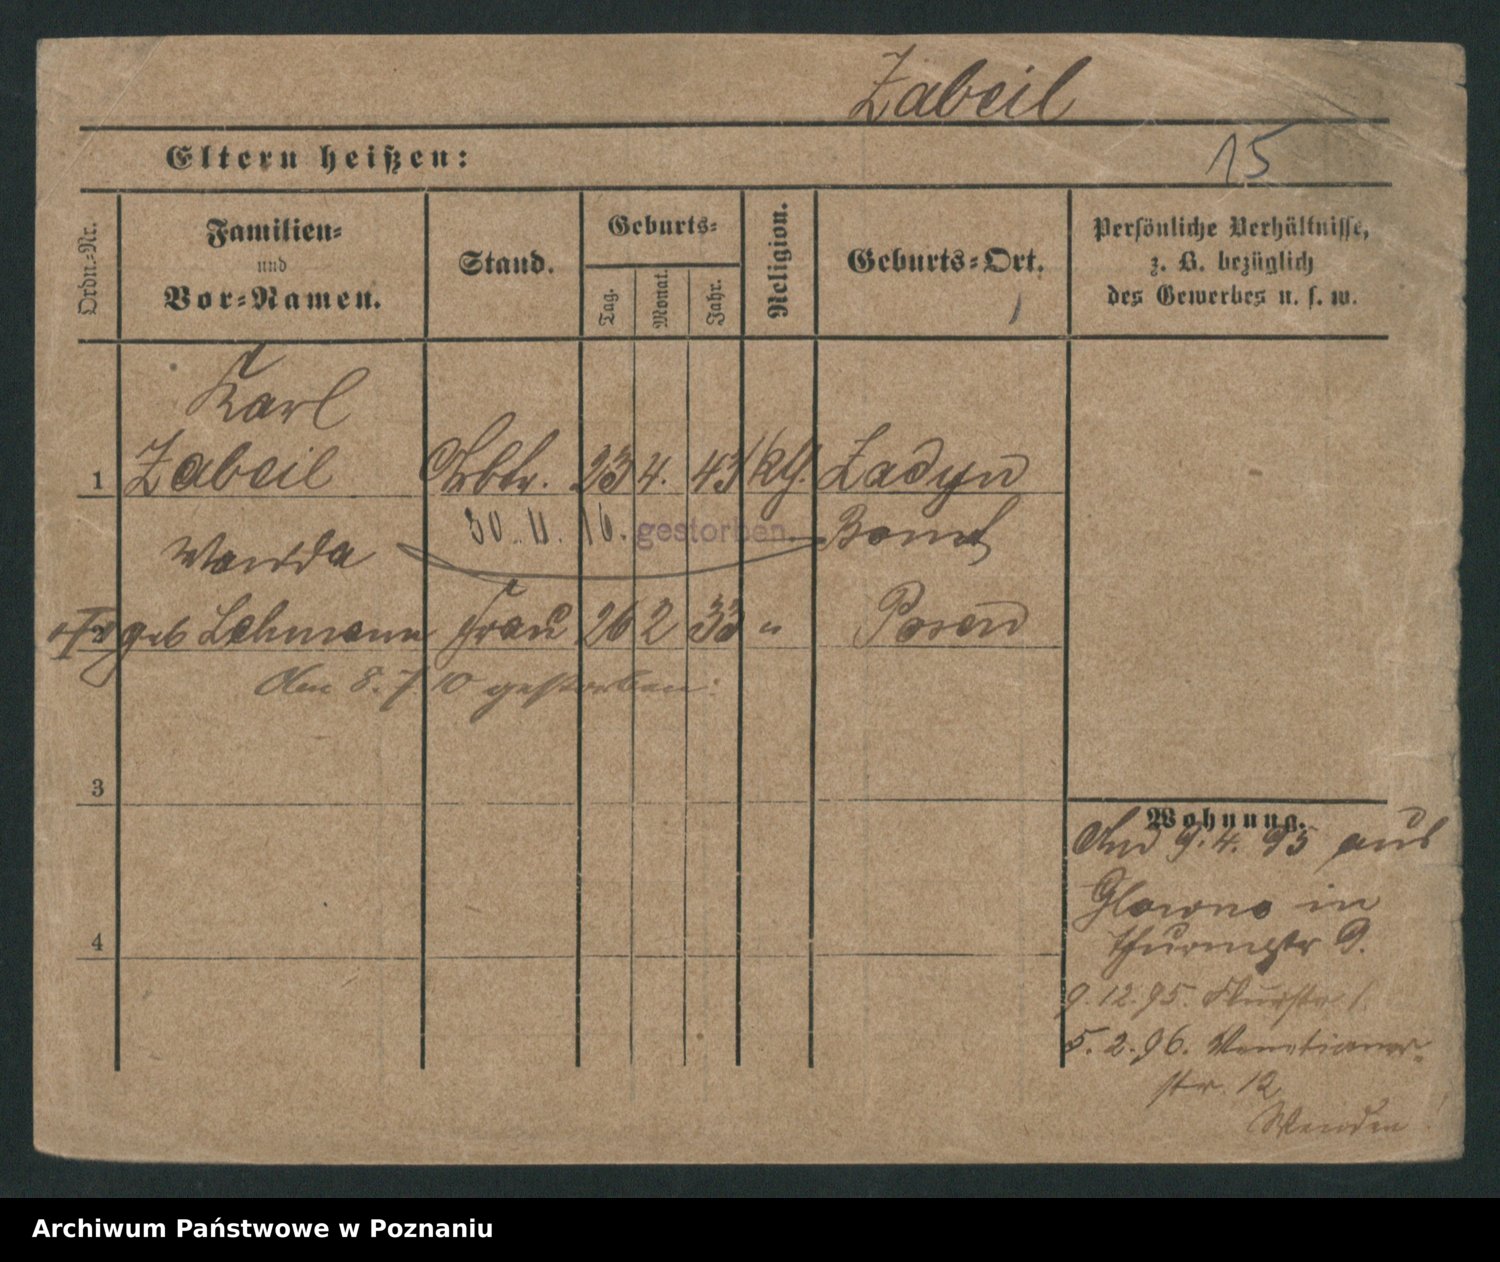 Zabeil
15
Eltern heißen:
Ordn.-Nr.
Familien-
und
Vor-Namen.
Stand.
Geburts-
Tag.
Monat.
Jahr.
Religion.
Geburts-Ort.
Persönliche Verhältnisse,
z. B. bezüglich
des Gewerbes u. s. w.
Karl
1 Zabeil Arbtr. 23 4. 43 kg. Zadyn
30. 11. 16. gestorben. Bomst
Wanda
2 geb Lehmann Frau 26 2 33 " Posen
Am 8. 7 10 gestorben.
3
4
Wohnung.
And 9. 4. 95 aus
Glowno in
Thurmstr 9.
9. 12. 95. Flurstr 1.
5. 2. 96. Venetianer-
str. 12
Wenden!
Archiwum Państwowe w Poznaniu